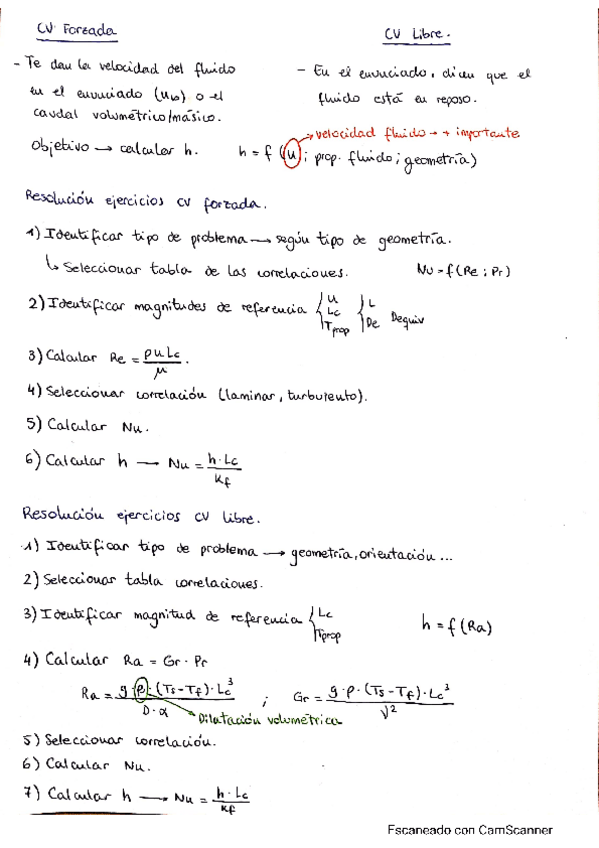 CV Forzada
- Te dan la velocidad del fluido
en el enunciado (u∞) o el
caudal volumétrico/másico.
CV Libre.
- En el enunciado, dicen que el
fluido está en reposo.
→ velocidad fluido → + importante
Objetivo → calcular h. h = f (u; prop. fluido; geometría)
Resolución ejercicios CV forzada.
1) Identificar tipo de problema → según tipo de geometría.
↳ Seleccionar tabla de las correlaciones. Nu = f(Re; Pr)
2) Identificar magnitudes de referencia { u { L
Lc
Tprop De Dequiv
3) Calcular Re = ρuLc / μ.
4) Seleccionar correlación (laminar, turbulento).
5) Calcular Nu.
6) Calcular h → Nu = h·Lc / Kf
Resolución ejercicios CV libre.
1) Identificar tipo de problema → geometría, orientación...
2) Seleccionar tabla correlaciones.
3) Identificar magnitud de referencia { Lc
Tprop h = f(Ra)
4) Calcular Ra = Gr · Pr
Ra = g·β·(Ts-Tf)·Lc³ / ν·α ; Gr = g·β·(Ts-Tf)·Lc³ / ν²
Dilatación volumétrica
5) Seleccionar correlación.
6) Calcular Nu.
7) Calcular h → Nu = h·Lc / Kf
Escaneado con CamScanner